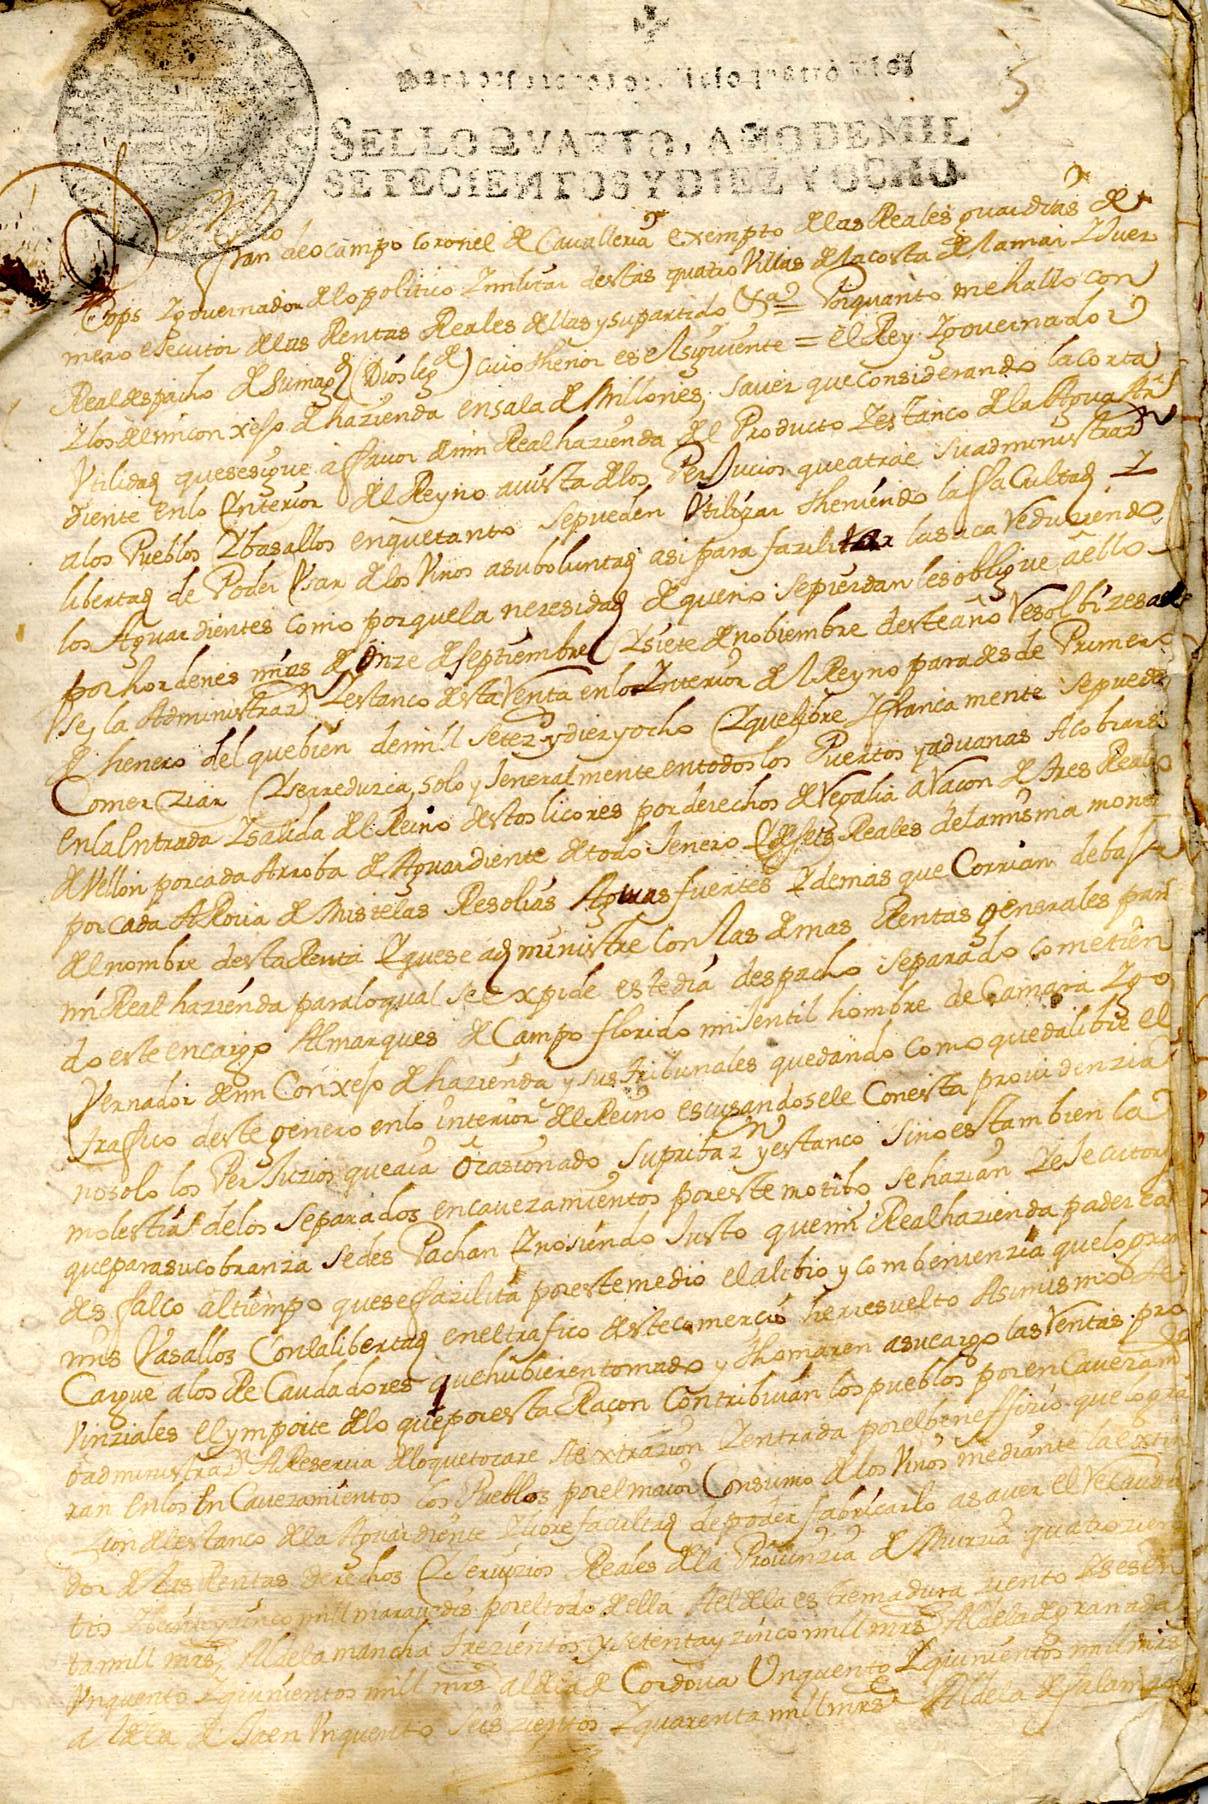 5
SELLO QVARTO, AÑO DE MIL
SETECIENTOS Y DIEZ Y OCHO.
Juan de ocampo Coronel de Cavalleria exempto de las Reales guardias de
Cops Y governador de lo politico Y militar destas quatro Villas de la costa de la mar Y
mero executor de las Rentas Reales dellas y su partido Porquanto me hallo con
Real despacho de su mag (Dios le g) cuio thenor es el siguiente = el Rey Y governador
Y los de mi conxejo de hazienda en sala de Millones, saver que considerando la corta
Vtilidad que se sigue a ffavor de mi Real hazienda del Producto Y estanco de la Agua Ar
diente en lo Ynterior del Reyno a vista de los Perjucios que atrae su administraz
a los Pueblos Y basallos en que tanto se pueden Vtilizar theniendo la ffacultad Y
libertad de Poder Vsar de los Vinos a su boluntad asi para fazilitar la saca Reduziendo
los Aguardientes como porque la nezesidad de que no se pierdan les obligue a ello
por hordenes mias de Onze de septiembre Y siete de nobiembre deste año Resolbi zesa
se, la Administraz Y estanco desta Renta en lo Ynterior del Reyno para desde Primero
de henero del que bien de mill setez y diez y ocho Y que libre Y francamente se pueda
Comerziar Y se rreduzca, solo y Jeneralmente en todos los Puertos y aduanas A cobrarse
en la entrada Y salida del Reino destos licores por derechos de Regalia a Racon de tres Reales
de Vellon por cada Arroba de Aguardiente de todo Jenero Y de seis Reales de la misma moneda
por cada ARova de Mistelas Resolias Aguas fuertes Y demas que Corrian debajo
del nombre desta Renta Y que se administre con las demas Rentas generales para
mi Real hazienda para lo qual se expide este dia despacho separado cometien
do este encargo Al marques de Campo florido mi Jentil hombre de Camara Y go
Vernador de mi Conxejo de hazienda y sus tribunales quedando como queda libre el
traffico deste genero en lo ynterior del Reino escusandosele Con esta providenzia
no solo los Perjuizios que avia Ocasionado su pribaz y estanco sino es tambien la
molestia de los separados encavezamientos por este motibo se hazian Y executores
que para su cobranza se des Pachan Y no siendo Justo que mi Real hazienda padezca
desfalco al tiempo que se ffazilita por este medio el alibio y combenienzia que logran
mis Vasallos Con la libertad en el trafico deste comercio he rresuelto Asimismo se
Cargue a los ReCaudadores que hubieren tomado y thomaren a su cargo las Rentas pro
Vinziales el ymporte de lo que por esta Racon Contribuian los pueblos por en Cavezam
o administraz A Reserva de lo que tocare A extrazion Y entrada por el beneffizio que logra
ran en los en Cavezamientos los Pueblos por el maior Consumo de los Vinos mediante la extin
Zion del estanco de la Aguardiente Y libre facultad de poder fabricarlo a saver el Recauda
dor de las Rentas derechos Y servizios Reales de la Provinzia de Murzia quatrozien
tos Y beinte y zinco mill maravedis por el todo de ella Al de la estremadura ziento Y sesen
ta mill mrs, Al de la mancha trezientos y setenta y zinco mill mrs Al de la de granada
Vn quento Y quinientos mill mrs al de la de Cordova Vn quento Y quinientos mill mrs
al de la de Jaen Vn quento seis zientos Y quarenta mill mrs Al de la de salamanca